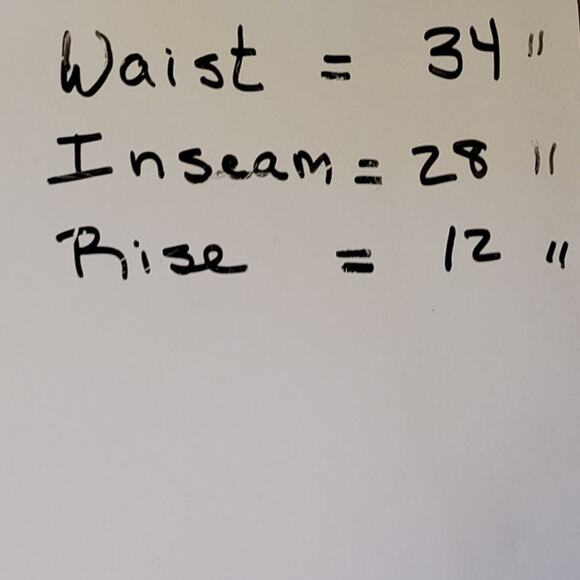 Waist = 34"
Inseam = 28"
Rise = 12"